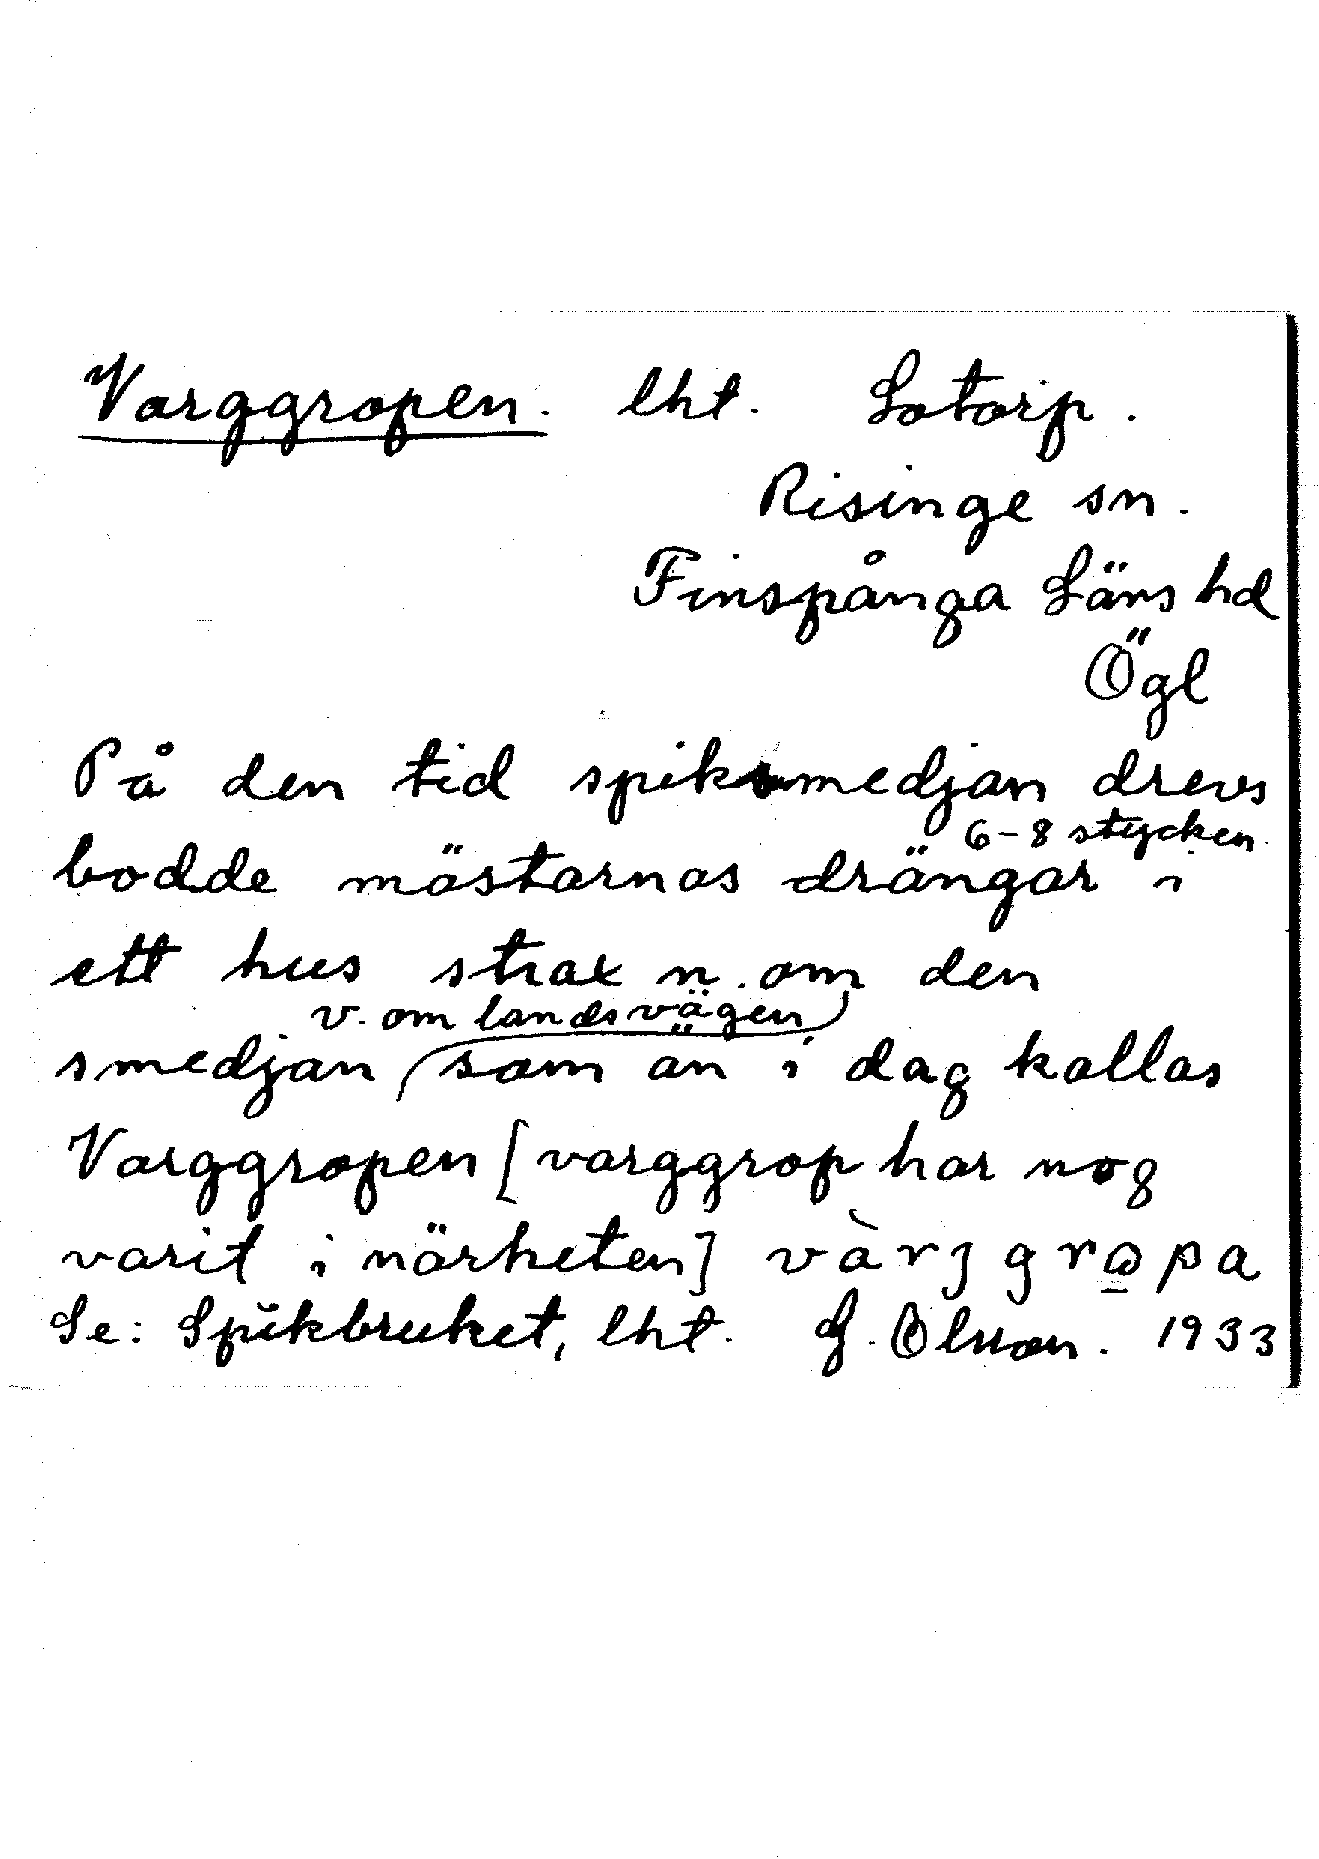 Varggropen. lht. Lotorp.
Risinge sn.
Finspånga Läns hd
Ögl
På den tid spiksmedjan drevs
6-8 stycken
bodde mästarnas drängar i
ett hus strax n. om den
v. om landsvägen
smedjan som än i dag kallas
Varggropen [varggrop har nog
varit i närheten]
Se: Spikbruket, lht. G. Olsson. 1933